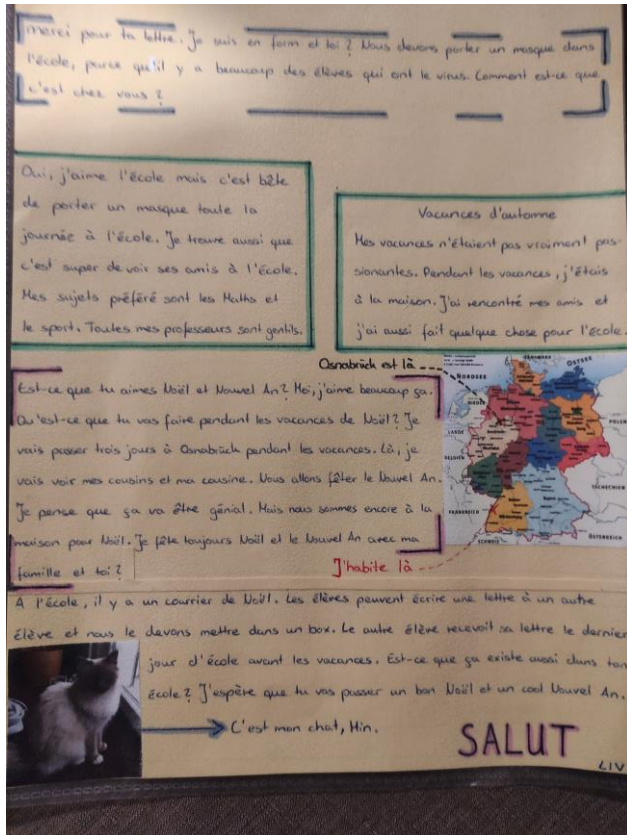 merci pour ta lettre. Je suis en form et toi? Nous devons porter un masque dans
l'école, parce qu'il y a beaucoup des élèves qui ont le virus. Comment est-ce que
c'est chez vous?
Oui, j'aime l'école mais c'est bête
de porter un masque toute la
journée à l'école. Je trouve aussi que
c'est super de voir ses amis à l'école.
Mes sujets préféré sont les Maths et
le sport. Toutes mes professeurs sont gentils.
Vacances d'automne
Mes vacances n'étaient pas vraiment pas-
sionantes. Pendant les vacances, j'étais
à la maison. J'ai rencontré mes amis et
j'ai aussi fait quelque chose pour l'école.
Osnabrück est là
Est-ce que tu aimes Noël et Nouvel An? Moi, j'aime beaucoup ça.
Qu'est-ce que tu vas faire pendant les vacances de Noël? Je
vais passer trois jours à Osnabrück pendant les vacances. Là, je
vais voir mes cousins et ma cousine. Nous allons fêter le Nouvel An.
Je pense que ça va être génial. Mais nous sommes encore à la
maison pour Noël. Je fête toujours Noël et le Nouvel An avec ma
famille et toi?
NORDSEE
OSTSEE
POLEN
TSCHECHIEN
ÖSTERREICH
SCHWEIZ
FRANKREICH
BELGIEN
J'habite là
A l'école, il y a un courrier de Noël. Les élèves peuvent écrire une lettre à un autre
élève et nous le devons mettre dans un box. Le autre élève recevoit sa lettre le dernier
jour d'école avant les vacances. Est-ce que ça existe aussi dans ton
école? J'espère que tu vas passer un bon Noël et un cool Nouvel An.
C'est mon chat, Min.
SALUT
LIV